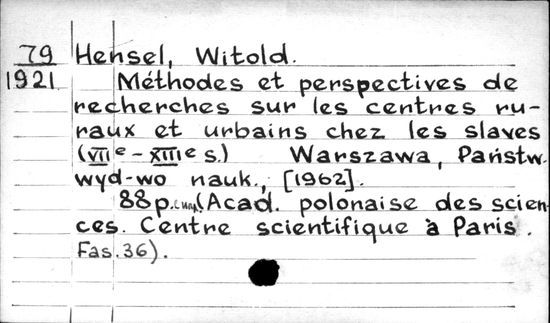 79 Hensel, Witold.
1921 Méthodes et perspectives de
recherches sur les centres ru-
raux et urbains chez les slaves
(VIIe – XIIIe s.) Warszawa, Państw.
wyd-wo nauk., [1962].
88p. (Acad. polonaise des scien
ces. Centre scientifique à Paris.
Fas. 36).